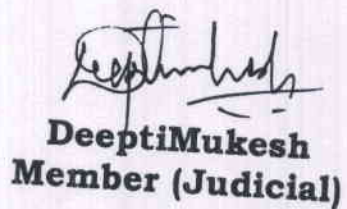 DeeptiMukesh
Member (Judicial)